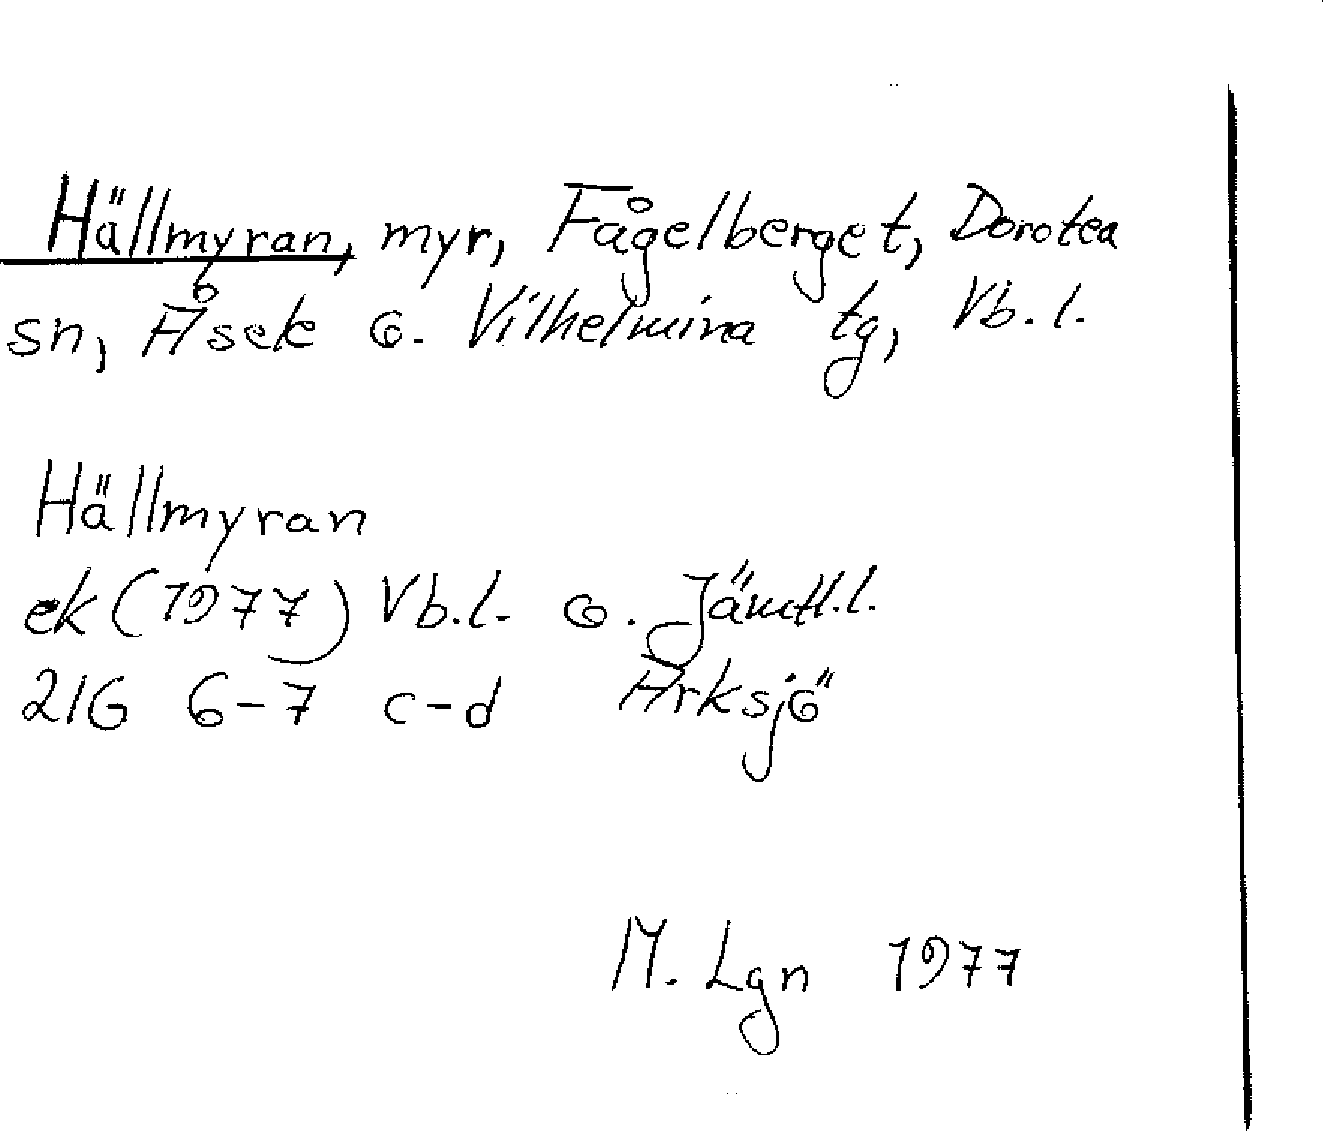 Hällmyran, myr, Fågelberget, Dorotea
sn, Åsele o. Vilhelmina tg, Vb. l.
Hällmyran
ek (1977) Vb.l. o. Jämtl.l.
21G 6-7 c-d Arksjö
M. Lgn 1977